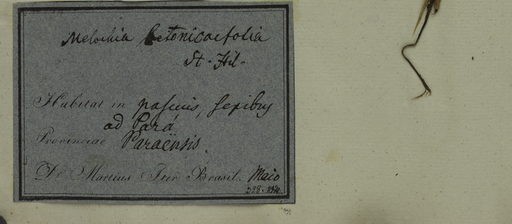 Melochia betonicaefolia
St. Hil.
Habitat in pascuis, sepibus
ad Pará
Provinciae Paraënsis.
Dr. Martius Iter Brasil. Maio